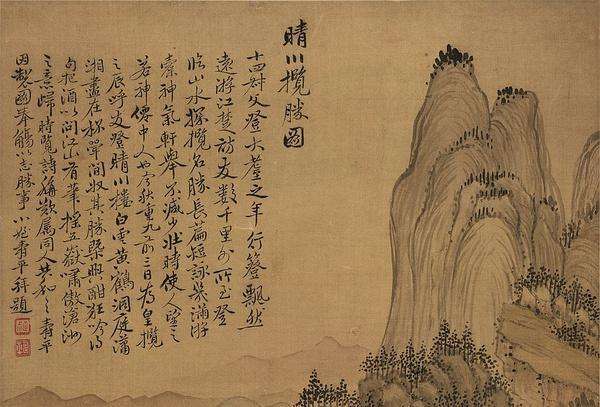 晴川攬勝圖
十四叔父登大耋之年行簦飄然
遠游江楚訪友數千里外所至登
臨山水探攬名勝長篇短詠幾滿游
橐神氣軒舉不減少壯時使人望之
若神僊中人也今秋重九前三日為皇攬
之辰呼友登晴川樓白雲黃鶴洞庭瀟
湘盡在杯斝間收其勝槩興酣狂吟得
句把酒以問江山有筆搖五嶽嘯傲滄洲
之意歸時覽詩稱歎屬同人共和之壽平
因製圖奉觴以志勝事小姪壽平拜題